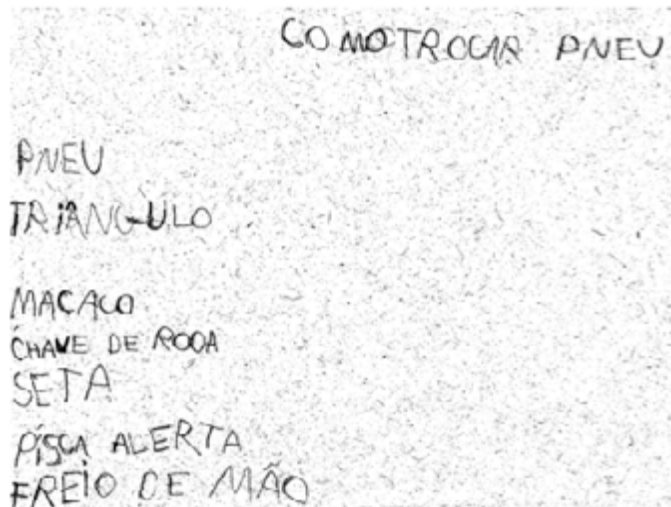 COMO TROCAR PNEU
PNEU
TRIÂNGULO
MACACO
CHAVE DE RODA
SETA
PISCA ALERTA
FREIO DE MÃO